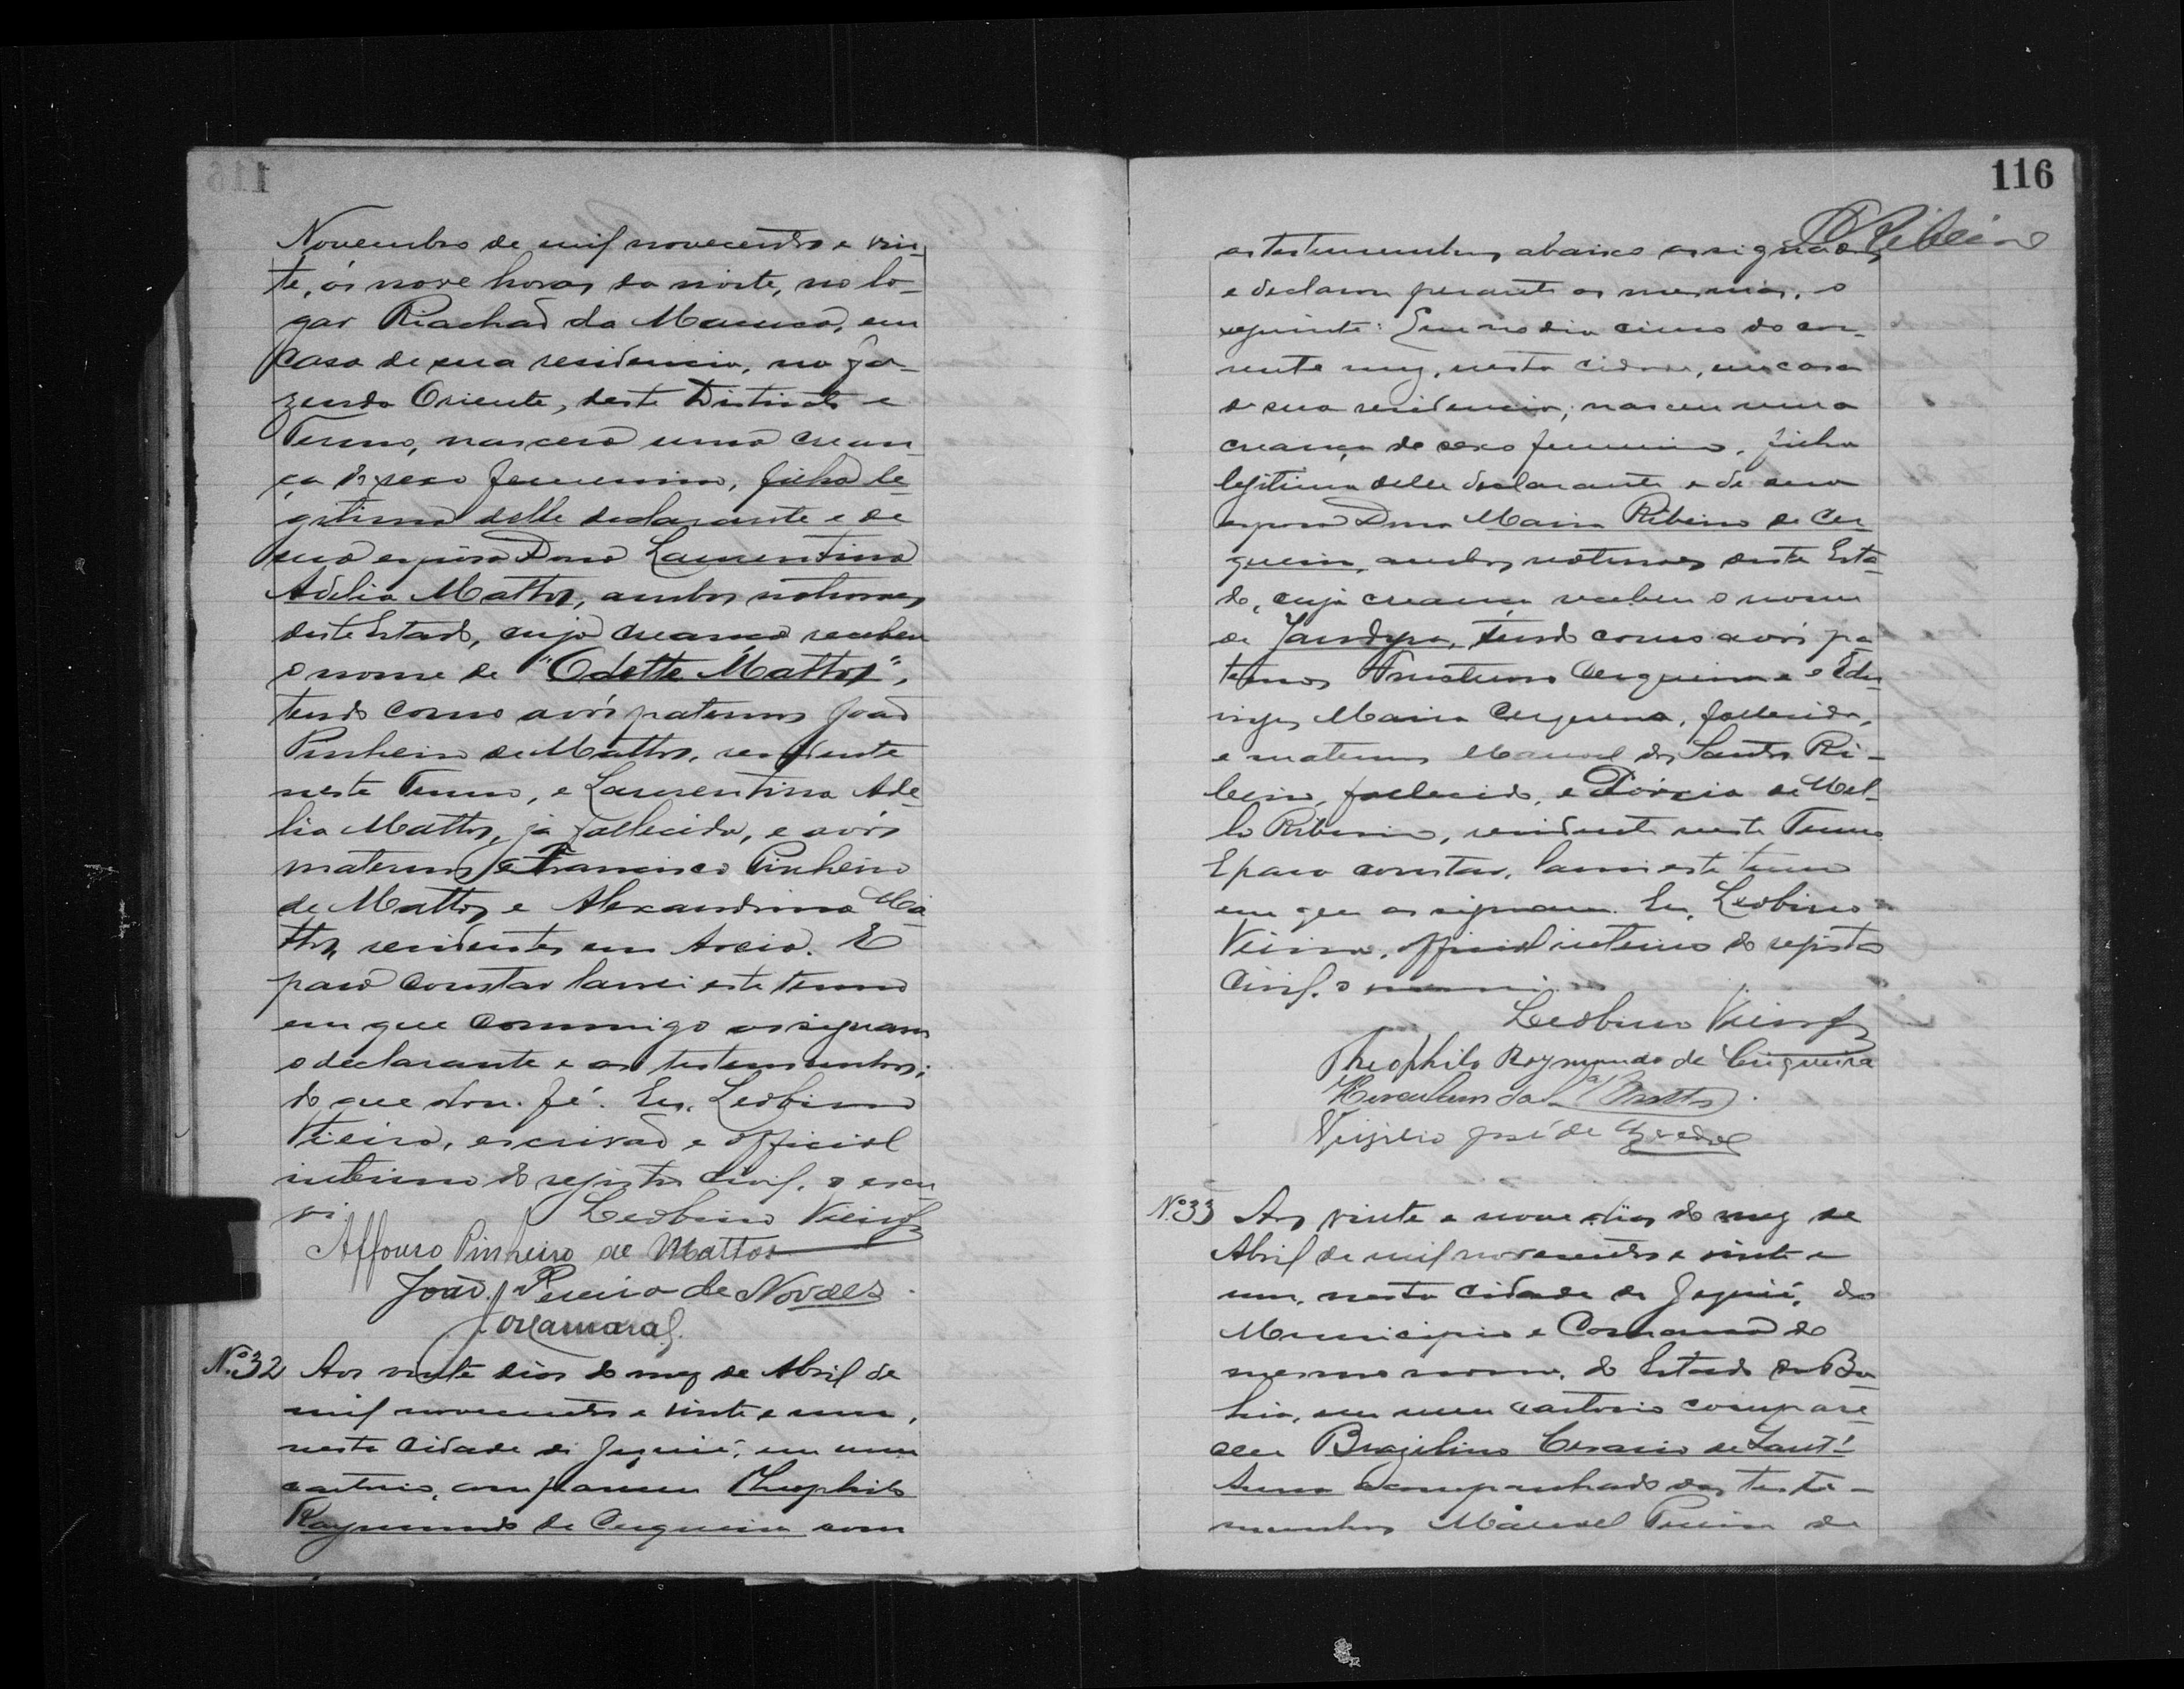 116
Novembro de mil novecentos e vin-
te, ás nove horas da noite, no lo-
gar Riachaõ da Mamcio, em
casa de sua residencia, na fa-
zenda Oriente, deste Districto e
Termo, nascera uma crean-
ça do sexo femenino, filha le-
gitima delle declarante e de
sua esposa Dona Laurentina
Adelia Mattos, ambos naturaes
deste Estado, cuja creança recebeu
o nome de "Odette Mattos",
tendo como avós paternos João
Pinheiro de Mattos, residente
neste Termo, e Laurentina Ade-
lia Mattos, já fallecida, e avós
maternos Francisco Pinheiro
de Mattos e Alexandrina Ma-
ttos, residentes em Areia. E
para constar lavrei este termo
em que commigo assignam
o declarante e as testemunhas;
do que dou fé. Eu, Leobino
Vieira, escrivaõ e official
interino do registro Civil, o escre-
vi. Leobino Vieira
Affonso Pinheiro de Mattos
João Pereira de Novaes
J Camaral
Nº 32 Aos vinte dias do mez de Abril de
mil novecentos e vinte e um,
nesta Cidade de Jequié, em meu
cartorio, compareceu Theophilo
Raymundo de Cerqueira com
116
Ribeiro
as testemunhas abaixo assignadas
e declarou perante as mesmas, o
seguinte: Que no dia cinco do cor-
rente mez, nesta cidade, em casa
de sua residencia, nasceu uma
creança do sexo femenino, filha
legitima delle declarante e de sua
esposa Dona Maria Ribeiro de Cer-
queira, ambos naturaes deste Esta-
do, cuja creança recebeu o nome
de Jandyra, tendo como avós pa-
ternos Cerqueira e Edu-
viges Maria Cerqueira, fallecida,
e maternos Manoel dos Santos Ri-
beiro, fallecido, e Porcia de Mel-
lo Ribeiro, residente neste Termo.
E para constar, lavrei este termo
em que assignam. Eu, Leobino
Vieira, official interino do registro
Civil, o escrevi.
Leobino Vieira
Theophilo Raymundo de Cerqueira
Herculano da Mattos
Virgilio José de
Nº 33 Aos vinte e nove dias do mez de
Abril de mil novecentos e vinte e
um, nesta Cidade de Jequié, do
Municipio e Comarca do
mesmo nome, do Estado da Ba-
hia, em meu cartorio compare-
ceu Brazilino Cesario de Sant'-
Anna acompanhado das teste-
munhas Manoel Pereira de